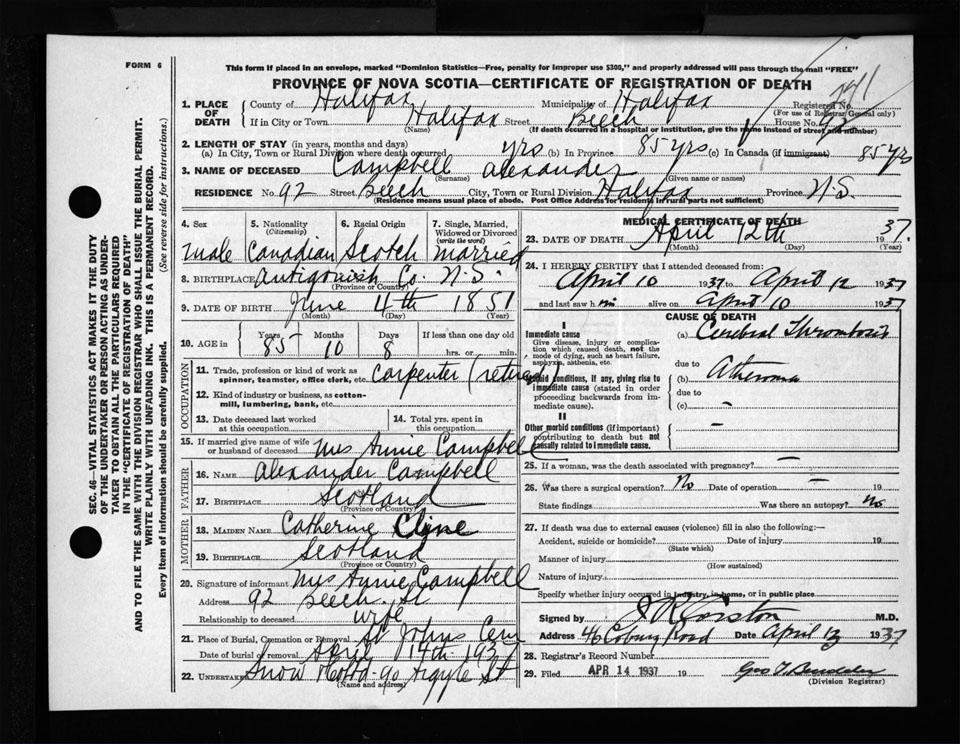 FORM 6
This form if placed in an envelope, marked "Dominion Statistics—Free, penalty for improper use $300," and properly addressed will pass through the mail "FREE"
PROVINCE OF NOVA SCOTIA—CERTIFICATE OF REGISTRATION OF DEATH
1. PLACE OF DEATH County of Halifax Municipality of Halifax Registered No.
(For use of Registrar General only)
If in City or Town Halifax Street Beech House No. 92
(Name) (If death occurred in a hospital or institution, give the name instead of street and number)
2. LENGTH OF STAY (in years, months and days)
(a) In City, Town or Rural Division where death occurred yrs (b) In Province 85 yrs (c) In Canada (if immigrant) 85 yrs
3. NAME OF DECEASED Campbell Alexander
(Surname) (Given name or names)
RESIDENCE No. 92 Street Beech City, Town or Rural Division Halifax Province N.S.
(Residence means usual place of abode. Post Office Address for residents in rural parts not sufficient)
4. Sex 5. Nationality (Citizenship) 6. Racial Origin 7. Single, Married, Widowed or Divorced (write the word)
male Canadian Scotch married
8. BIRTHPLACE Antigonish Co. N.S.
(Province or Country)
9. DATE OF BIRTH June 4th 1851
(Month) (Day) (Year)
10. AGE in Years Months Days If less than one day old
85 10 8 hrs. or min.
OCCUPATION
11. Trade, profession or kind of work as spinner, teamster, office clerk, etc. Carpenter (retired)
12. Kind of industry or business, as cotton-mill, lumbering, bank, etc.
13. Date deceased last worked at this occupation 14. Total yrs. spent in this occupation
15. If married give name of wife or husband of deceased Mrs Annie Campbell
FATHER
16. NAME Alexander Campbell
17. BIRTHPLACE Scotland
(Province or Country)
MOTHER
18. MAIDEN NAME Catherine Cline
19. BIRTHPLACE Scotland
(Province or Country)
20. Signature of informant Mrs Annie Campbell
Address 92 Beech St
Relationship to deceased wife
21. Place of Burial, Cremation or Removal St Johns Cem
Date of burial or removal April 14th 1937
22. UNDERTAKER Snow 90 Argyle St
(Name and address)
MEDICAL CERTIFICATE OF DEATH
23. DATE OF DEATH April 12th 1937.
(Month) (Day) (Year)
24. I HEREBY CERTIFY that I attended deceased from:
April 10 1937 to April 12 1937
and last saw him alive on April 10 1937
CAUSE OF DEATH
I
Immediate cause
Give disease, injury or complication which caused death, not the mode of dying, such as heart failure, asphyxia, asthenia, etc.
(a) Cerebral Thrombosis
due to
Morbid conditions, if any, giving rise to immediate cause (stated in order proceeding backwards from immediate cause).
(b) Atheroma
due to
(c) –
II
Other morbid conditions (if important) contributing to death but not causally related to immediate cause. –
25. If a woman, was the death associated with pregnancy? –
26. Was there a surgical operation? No Date of operation – 19
State findings Was there an autopsy? No
27. If death was due to external causes (violence) fill in also the following:—
Accident, suicide or homicide? Date of injury 19
(State which)
Manner of injury
(How sustained)
Nature of injury
Specify whether injury occurred in industry, in home, or in public place
Signed by M.D.
Address 46 Coburg Road Date April 13 1937
28. Registrar's Record Number
29. Filed APR 14 1937 19
(Division Registrar)
SEC. 46—VITAL STATISTICS ACT MAKES IT THE DUTY
OF THE UNDERTAKER OR PERSON ACTING AS UNDER-
TAKER TO OBTAIN ALL THE PARTICULARS REQUIRED
IN THE "CERTIFICATE OF REGISTRATION OF DEATH"
AND TO FILE THE SAME WITH THE DIVISION REGISTRAR WHO SHALL ISSUE THE BURIAL PERMIT.
WRITE PLAINLY WITH UNFADING INK. THIS IS A PERMANENT RECORD.
Every item of information should be carefully supplied. (See reverse side for instructions.)